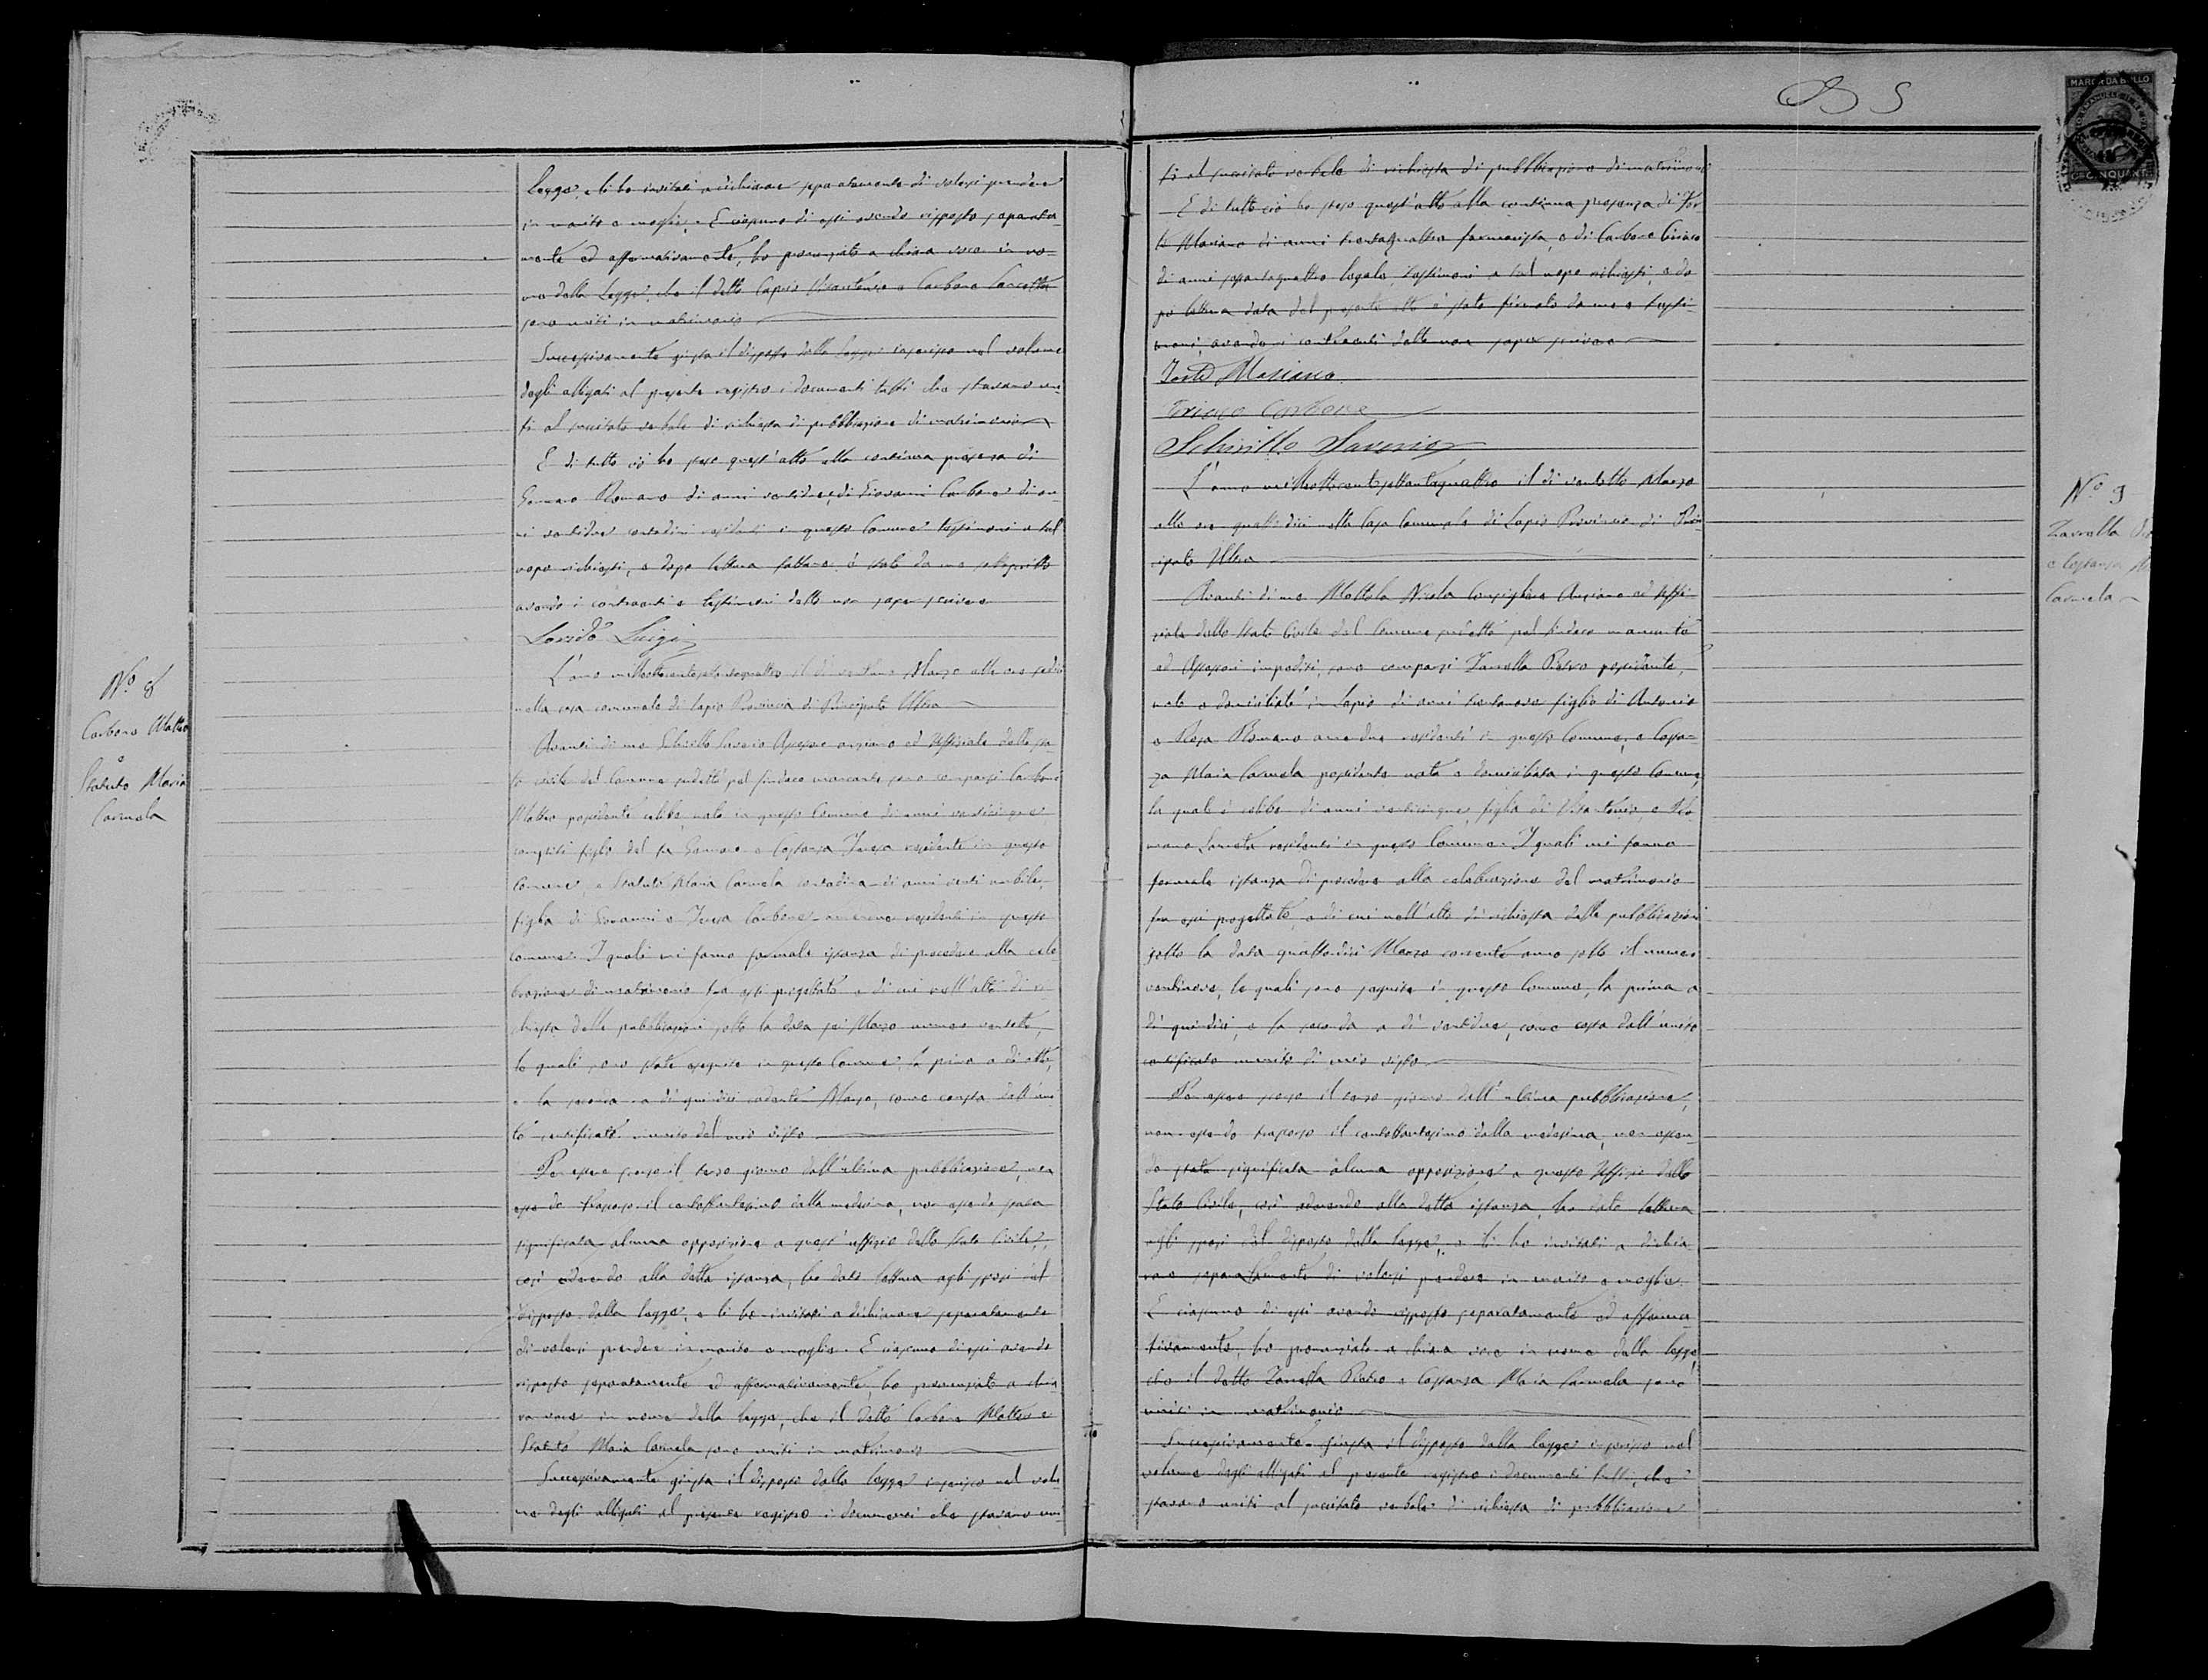 Legge, e li ho invitati a dichiarare separatamente di volersi prendere
in marito e moglie. E ciascuno di essi avendo risposto separata-
mente ed affermativamente, ho pronunziato a chiara voce in no-
me della Legge, che il detto Caprio Vitantonio e Carbone Concetta
sono uniti in matrimonio
Successivamente giusta il disposto della Legge inserisco nel volume
degli allegati al presente registro i documenti tutti che stavano uni-
ti al succitato verbale di richiesta di pubblicazione di matrimonio
E di tutto ciò ho steso quest'atto alla continua presenza di
Gennaro Romano di anni ventidue, di Giovanni Carbone di an-
ni ventidue contadini residenti in questo Comune testimoni a tal
uopo richiesti, e dopo lettura fattane è stato da me sottoscritto
avendo i contraenti e testimoni detto non saper scrivere
Luigi
N.º 8
Carbone Matteo
e
Statuto Maria
Carmela
L'anno milleottocentosettantaquattro il dì Marzo alle ore sedici
nella casa comunale di Lapio Provincia di Principato Ultra
Avanti di me Schiritto Saverio Assessore anziano ed Uffiziale dello sta-
to civile del Comune sudetto pel sindaco mancante sono comparsi Carbone
Matteo possidente celibe, nato in questo Comune di anni venticinque
compiti figlio del fu Gennaro e Costanza Teresa residente in questo
Comune, e Statuto Maria Carmela contadina di anni venti nubile,
figlia di Giovanni e Teresa Carbone amendue residenti in questo
comune. I quali mi fanno formale istanza di procedere alla cele-
brazione di matrimonio tra essi progettato e di cui nell'atto di ri-
chiesta delle pubblicazioni sotto la data sei Marzo numero ventotto,
le quali sono state eseguite in questo Comune, la prima a dì otto,
e la seconda a dì quindici cadente Marzo, come consta dall'uni-
to certificato munito del mio visto
Per essere scorso il terzo giorno dall'ultima pubblicazione, non
essendo trascorso il centottantesimo dalla medesima, non essendo stata
significata alcuna opposizione a quest'uffizio dello Stato Civile,
così aderendo alla detta istanza, ho dato lettura agli sposi del
disposto della legge, e li ho invitati a dichiarare separatamente
di volersi prendere in marito e moglie. E ciascuno di essi avendo
risposto separatamente ed affermativamente, ho pronunziato a chia-
ra voce in nome della legge, che il detto Carbone Matteo e
Statuto Maria Carmela sono uniti in matrimonio
Successivamente giusta il disposto della legge inserisco nel volu-
me degli allegati al presente registro i documenti che stavano uni-
5
MARCA DA BOLLO
ti al succitato verbale di richiesta di pubblicazione di matrimonio
E di tutto ciò ho steso quest'atto alla continua presenza di For-
te Mariano di anni trentaquattro farmacista, e di Carbone Ciriaco
di anni sessantaquattro legale, testimoni a tal uopo richiesti, e do-
po lettura data del presente atto è stato firmato da me e testi-
moni, avendo i contraenti detto non saper scrivere
Forte Mariano
Ciriaco Carbone
Schiritto Saverio
N.º 9
Zarrella
e Costanza
Carmela
L'anno milleottocentosettantaquattro il dì ventotto Marzo
alle ore quattordici nella Casa Comunale di Lapio Provincia di Prin-
cipato Ultra
Avanti di me Mottola Nicola Consigliere Anziano ed Uffi-
ziale dello Stato Civile del Comune sudetto pel sindaco mancante
ed Assessori impediti, sono comparsi Zarrella Pietro possidente,
nato e domiciliato in Lapio di anni trentanove figlio di Antonio
e Rosa Romano amendue residenti in questo Comune, e Costan-
za Maria Carmela possidente nata e domiciliata in questo Comune,
la quale è celibe di anni venticinque, figlia di Vitantonio, e Ro-
mano residenti in questo Comune. I quali mi fanno
formale istanza di procedere alla celebrazione del matrimonio
fra essi progettato, e di cui nell'atto di richiesta delle pubblicazioni
sotto la data quattordici Marzo corrente anno sotto il numero
ventinove, le quali sono seguite in questo Comune, la prima a
dì quindici, e la seconda a dì ventidue, come costa dall'unito
certificato munito di mio visto
Per essere scorso il terzo giorno dall'ultima pubblicazione,
non essendo trascorso il centottantesimo dalla medesima, non essen-
do stata significata alcuna opposizione a questo Uffizio dello
Stato Civile, così aderendo alla detta istanza, ho dato lettura
agli sposi del disposto della legge, e li ho invitati a dichia-
rare separatamente di volersi prendere in marito e moglie.
E ciascuno di essi avendo risposto separatamente ed afferma-
tivamente, ho pronunziato a chiara voce in nome della legge,
che il detto Zarrella Pietro e Costanza Maria Carmela sono
uniti in matrimonio
Successivamente giusta il disposto della legge inserisco nel
volume degli allegati al presente registro i documenti tutti, che
stavano uniti al succitato verbale di richiesta di pubblicazione